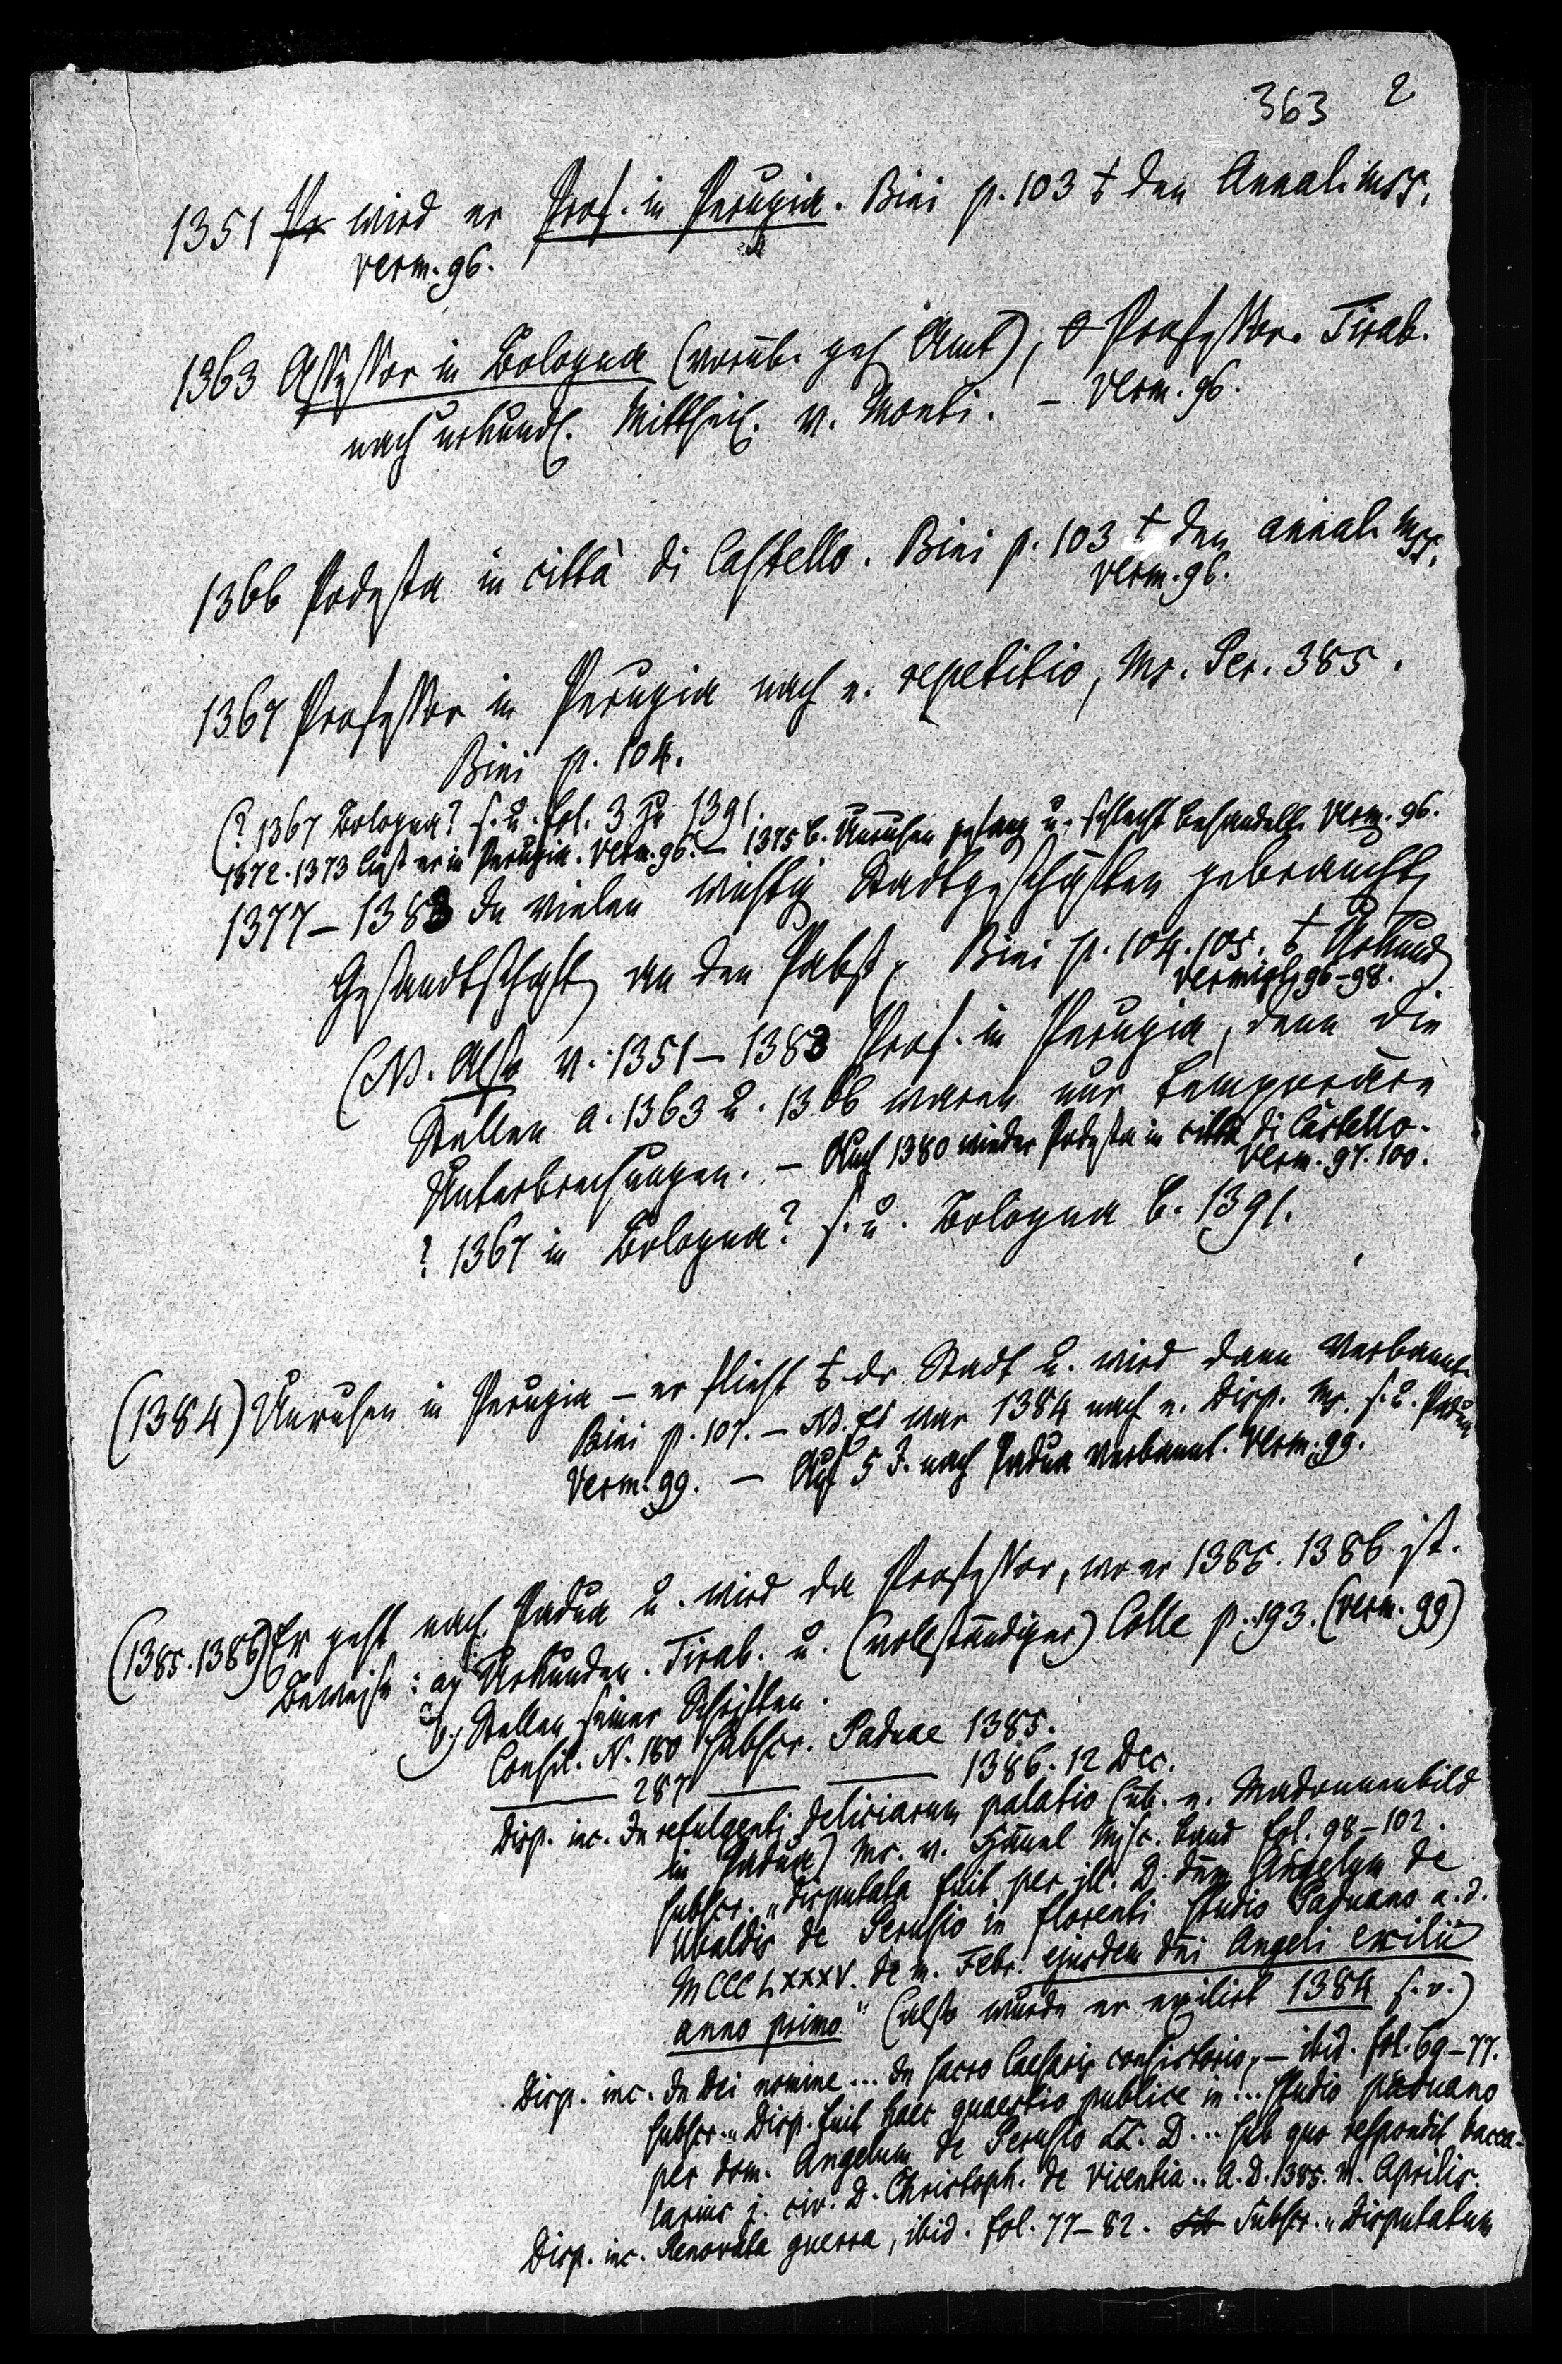 363 2
1351 Pr wird er Prof. in Perugia. Bini p. 103 den Annali mss.
Verm. 96.
1363 Assessor in Bologna (vorüb. geh. Amt), Professor. Tirab.
nach urkundl. Mittheil. v. Monti. – Verm. 96.
1366 Podesta in città di Castello. Bini p. 103 den annal. Mss.
Verm. 96.
1367 Professor in Perugia nach e. repetitio, Ms. Ser. 385.
Bini p. 104.
(? 1367 Bologna? s. u. fol. 3 zu 1391.
1372. 1373 liest er in Perugia. Verm. 96. – 1375 b. Unruhen gefang u. schlecht behandelt. Verm. 96.
1377–1383 In vielen wichtig Stadtgeschäften gebraucht,
Gesandtschaft an den Pabst, Bini p. 104. 105. Urkund
Vermigl. 96–98.
(NB. Also v. 1351–1383 Prof. in Perugia, denn die
Stellen a. 1363 u. 1366 waren nur temporäre
Unterbrechungen. – Auch 1380 wieder Podesta in città di Castello.
Verm. 97. 100.
? 1367 in Bologna? s. u. Bologna b. 1391.
(1384) Unruhen in Perugia – er flieht dr Stadt u. wird dann verbannt.
Bini p. 107. – NB. Es war 1384 nach e. Disp. Ms. s. u. Padua
Verm. 99. – Auf 5 J. nach Padua verbannt. Verm. 99.
(1385. 1386) Er geht nach Padua u. wird da Professor, wo er 1385. 1386 ist.
Beweise: a) Urkunden. Tirab. u. (vollständiger) Colle p. 193. (Verm. 99)
b) Stellen seiner Schriften.
Consil. N. 180 subscr. Paduae 1385.
287 1386. 12 Dec.
Disp. inc. In refulgenti deliciarum palatio (üb. e. Madonnenbild
in Padua) Ms. v. Hänel Misc. Band fol. 98–102.
subscr. „disputata fuit per ill. D. dnm Angelum de
Ubaldis de Perusio in florenti studio Paduano a. d.
MCCCLXXXV. de m. Febr. ejusdem dni Angeli exilii
anno primo" (also wurde er exilirt 1384 s. o.)
Disp. inc. In Dei nomine ... In sacro Caesaris consistorio, – ibid. fol. 69–77.
subscr. „Disp. fuit haec quaestio publice in ... studio paduano
per dom. Angelum de Perusio LL. D ... sub quo respondit bacca-
larius j. civ. D. Christoph. de Vicentia .. A. D. 1385. m. Aprilis.
Disp. inc. Renovata guerra, ibid. fol. 77–82. Subscr. „Disputatum